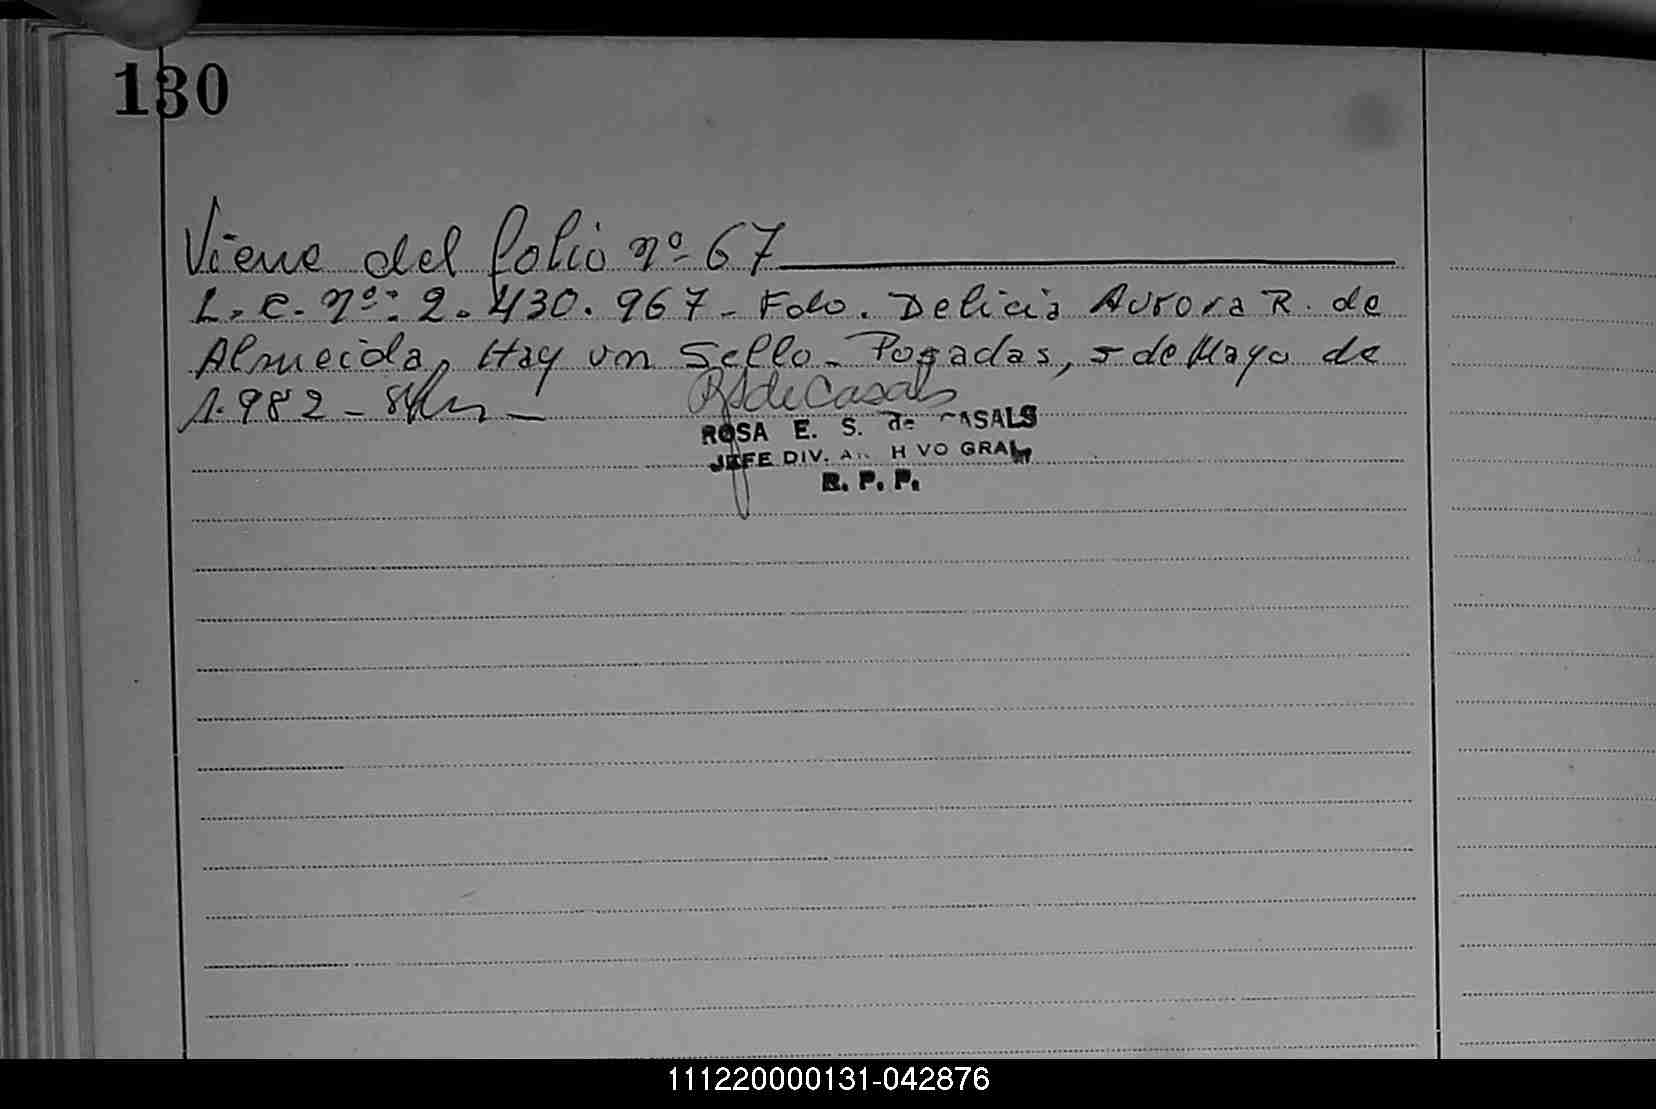 130
Viene del folio nº 67
L. C. nº: 2.430.967 - Fdo. Delicia Aurora R. de
Almeida, Hay un Sello - Posadas, 5 de Mayo de
1.982 -
RS de Casals
ROSA E. S. de CASALS
JEFE DIV. ARCHIVO GRAL,
R. P. P.
111220000131-042876